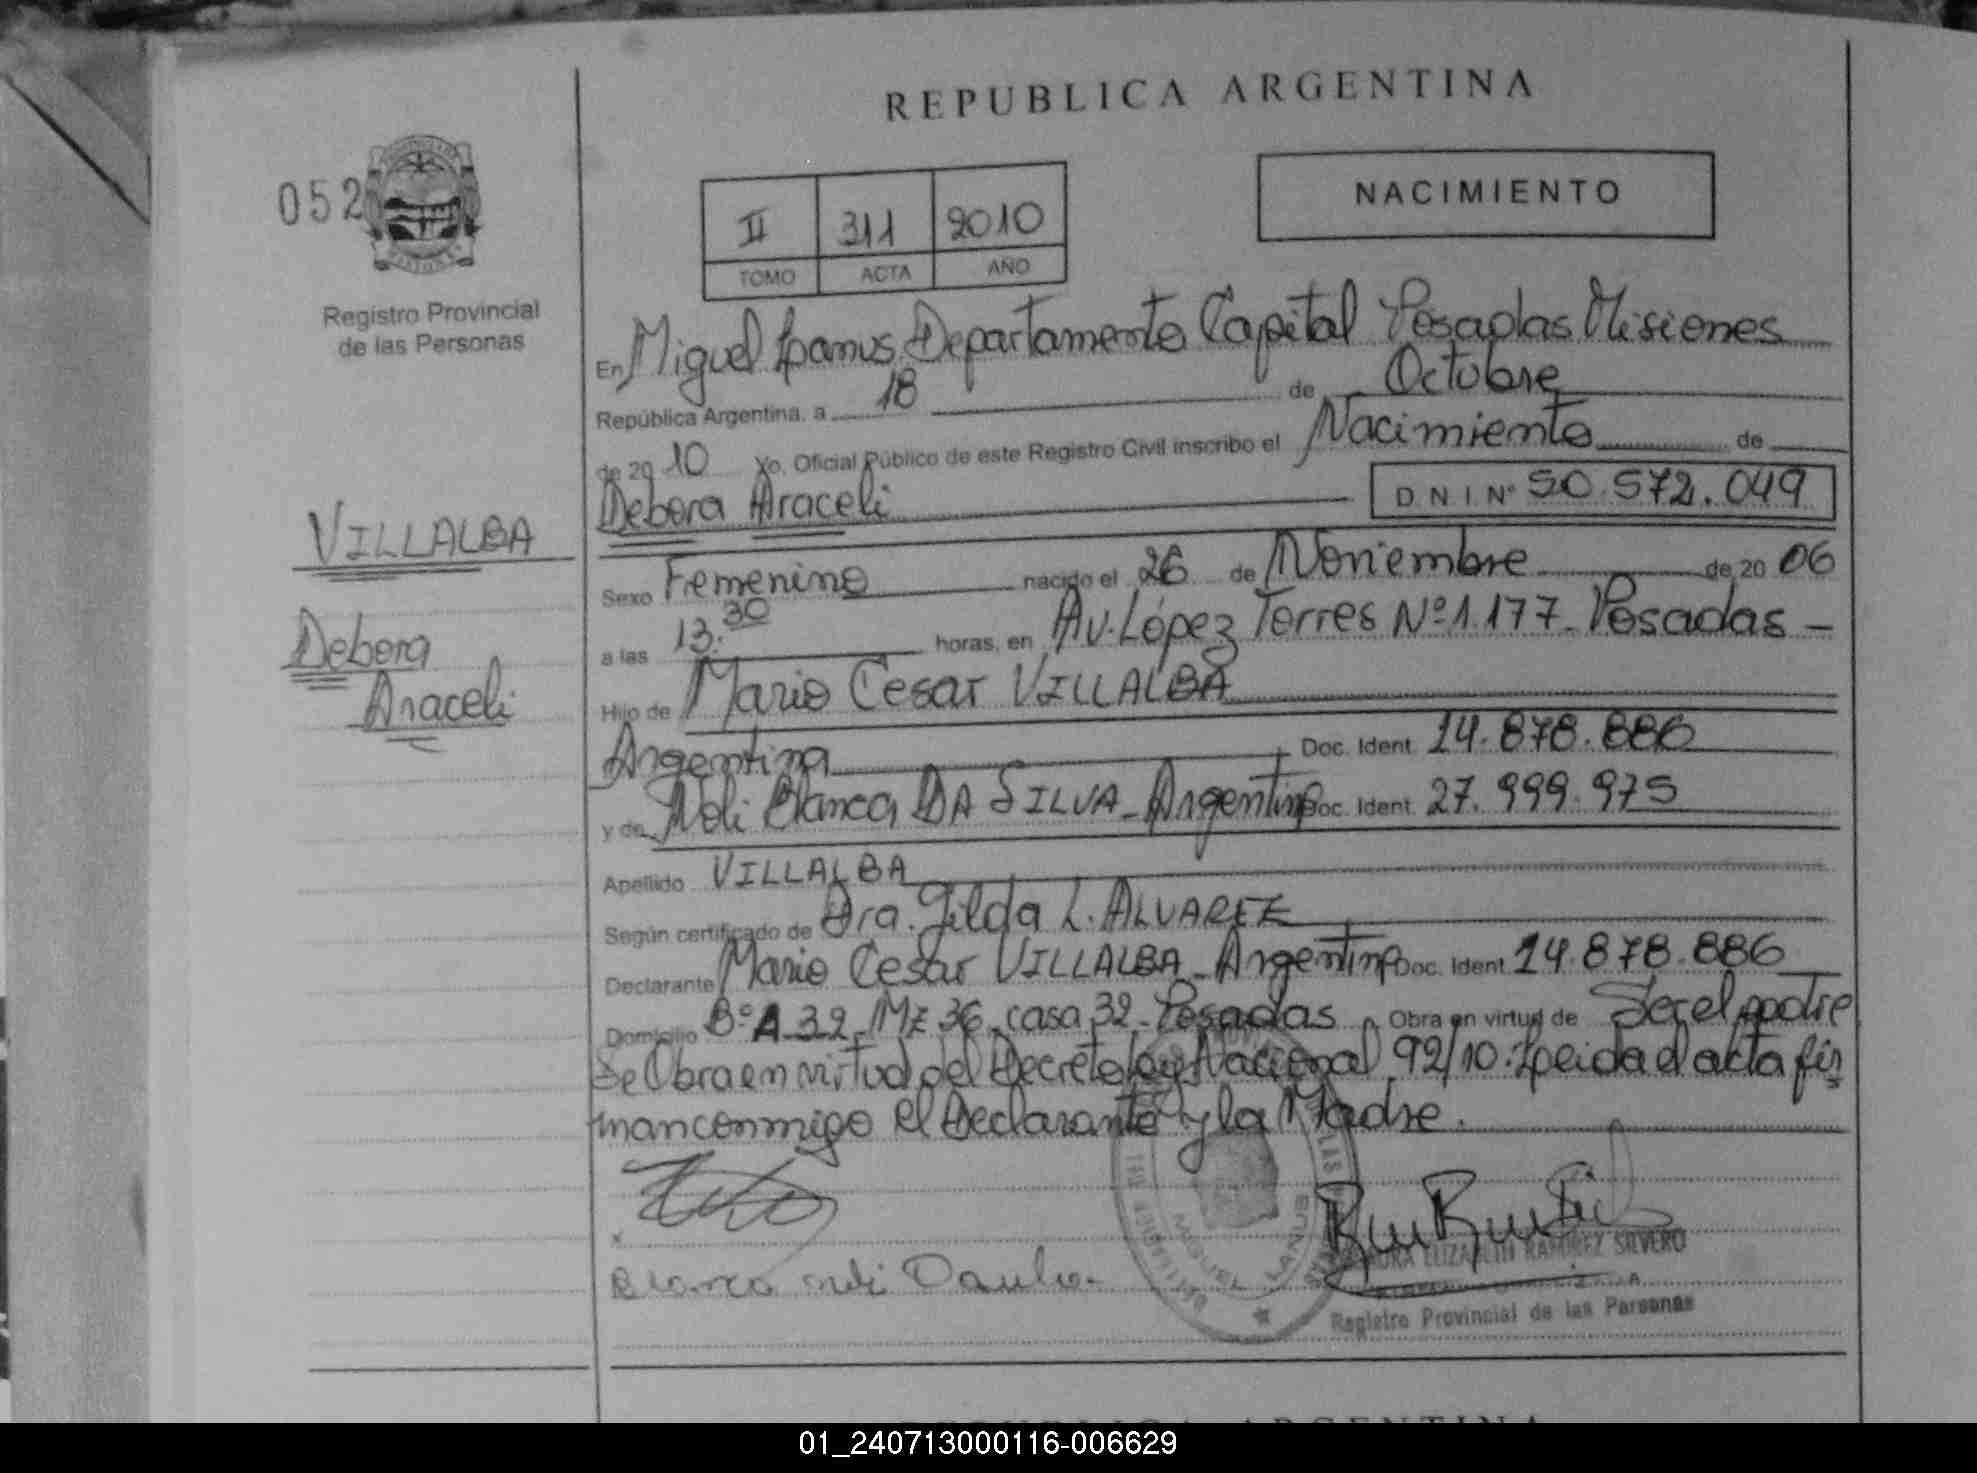 REPUBLICA ARGENTINA
052
NACIMIENTO
II 311 2010
TOMO ACTA AÑO
Registro Provincial
de las Personas
En Miguel Lanus Departamento Capital Posadas Misiones
República Argentina, a 18 de Octubre
de 20 10 Yo, Oficial Público de este Registro Civil inscribo el Nacimiento de
Debora Araceli D.N.I. Nº 50.572.049
VILLALBA
Debora
Araceli
Sexo Femenino nacido el 26 de Noviembre de 20 06
a las 13:30 horas, en Av. López Torres Nº 1.177 - Posadas -
Hijo de Mario Cesar VILLALBA
Argentina Doc. Ident. 14.878.886
y de Noli Blanca DA SILVA - Argentina Doc. Ident. 27.999.975
Apellido VILLALBA
Según certificado de Dra. Gilda L. ALVAREZ
Declarante Mario Cesar VILLALBA - Argentino Doc. Ident. 14.878.886
Domicilio Bº A 32 - Mz 36 - casa 32 - Posadas Obra en virtud de Ser el padre
Se Obra en virtud del Decreto Ley Nacional 92/10. Leida el acta fir
man conmigo el Declarante y la Madre.
MIGUEL LANUS
ELIZABETH RAMIREZ SILVERO
Registro Provincial de las Personas
REPUBLICA ARGENTINA
01_240713000116-006629